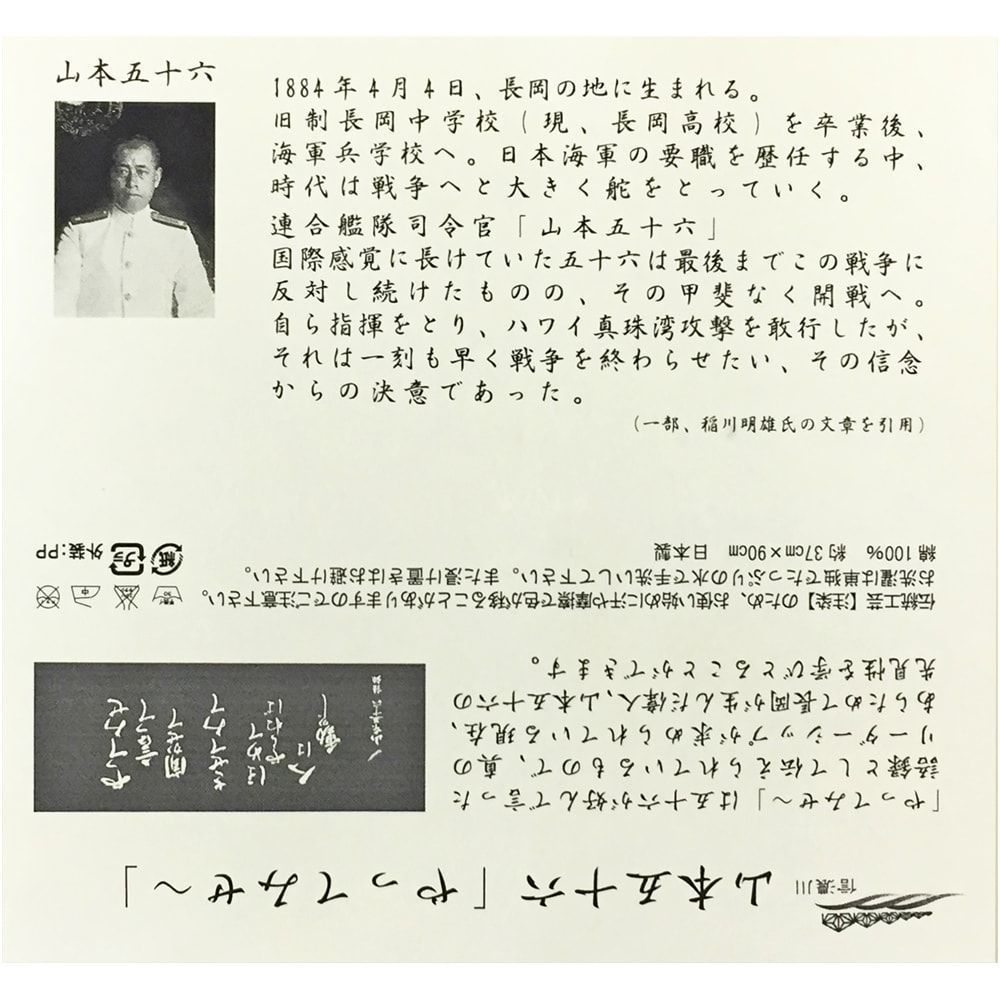 山本五十六
1884年4月4日、長岡の地に生まれる。
旧制長岡中学校(現、長岡高校)を卒業後、
海軍兵学校へ。日本海軍の要職を歴任する中、
時代は戦争へと大きく舵をとっていく。
連合艦隊司令官「山本五十六」
国際感覚に長けていた五十六は最後までこの戦争に
反対し続けたものの、その甲斐なく開戦へ。
自ら指揮をとり、ハワイ真珠湾攻撃を敢行したが、
それは一刻も早く戦争を終わらせたい、その信念
からの決意であった。
(一部、稲川明雄氏の文章を引用)
信濃川
山本五十六「やってみせ〜」
「やってみせ〜」は五十六が好んで言った
語録として伝えられているもので、真の
リーダーシップが求められている現在、
あらためて長岡が生んだ偉人、山本五十六の
先見性を学びとることができます。
やってみせ
言って
聞かせて
させてみて
ほめて
やらねば
人は
動かじ
伝統工芸【注染】のため、お使い始めに汗や摩擦で色が移ることがありますのでご注意下さい。
お洗濯は単独でたっぷりの水で手洗いして下さい。また浸け置きはお避け下さい。
綿100% 約37cm×90cm 日本製
紙
プラ
外装:PP
中